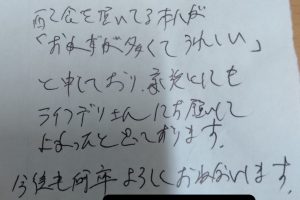 配食を頂いてる本人が
「おかずが多くてうれしい」
と申しており、家族としても
ライフデリさんにお願いして
よかったと思っております。
今後も何卒よろしくおねがいします。